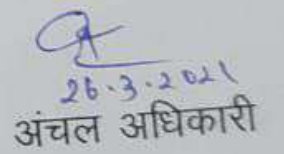 26.3.2021
अंचल अधिकारी